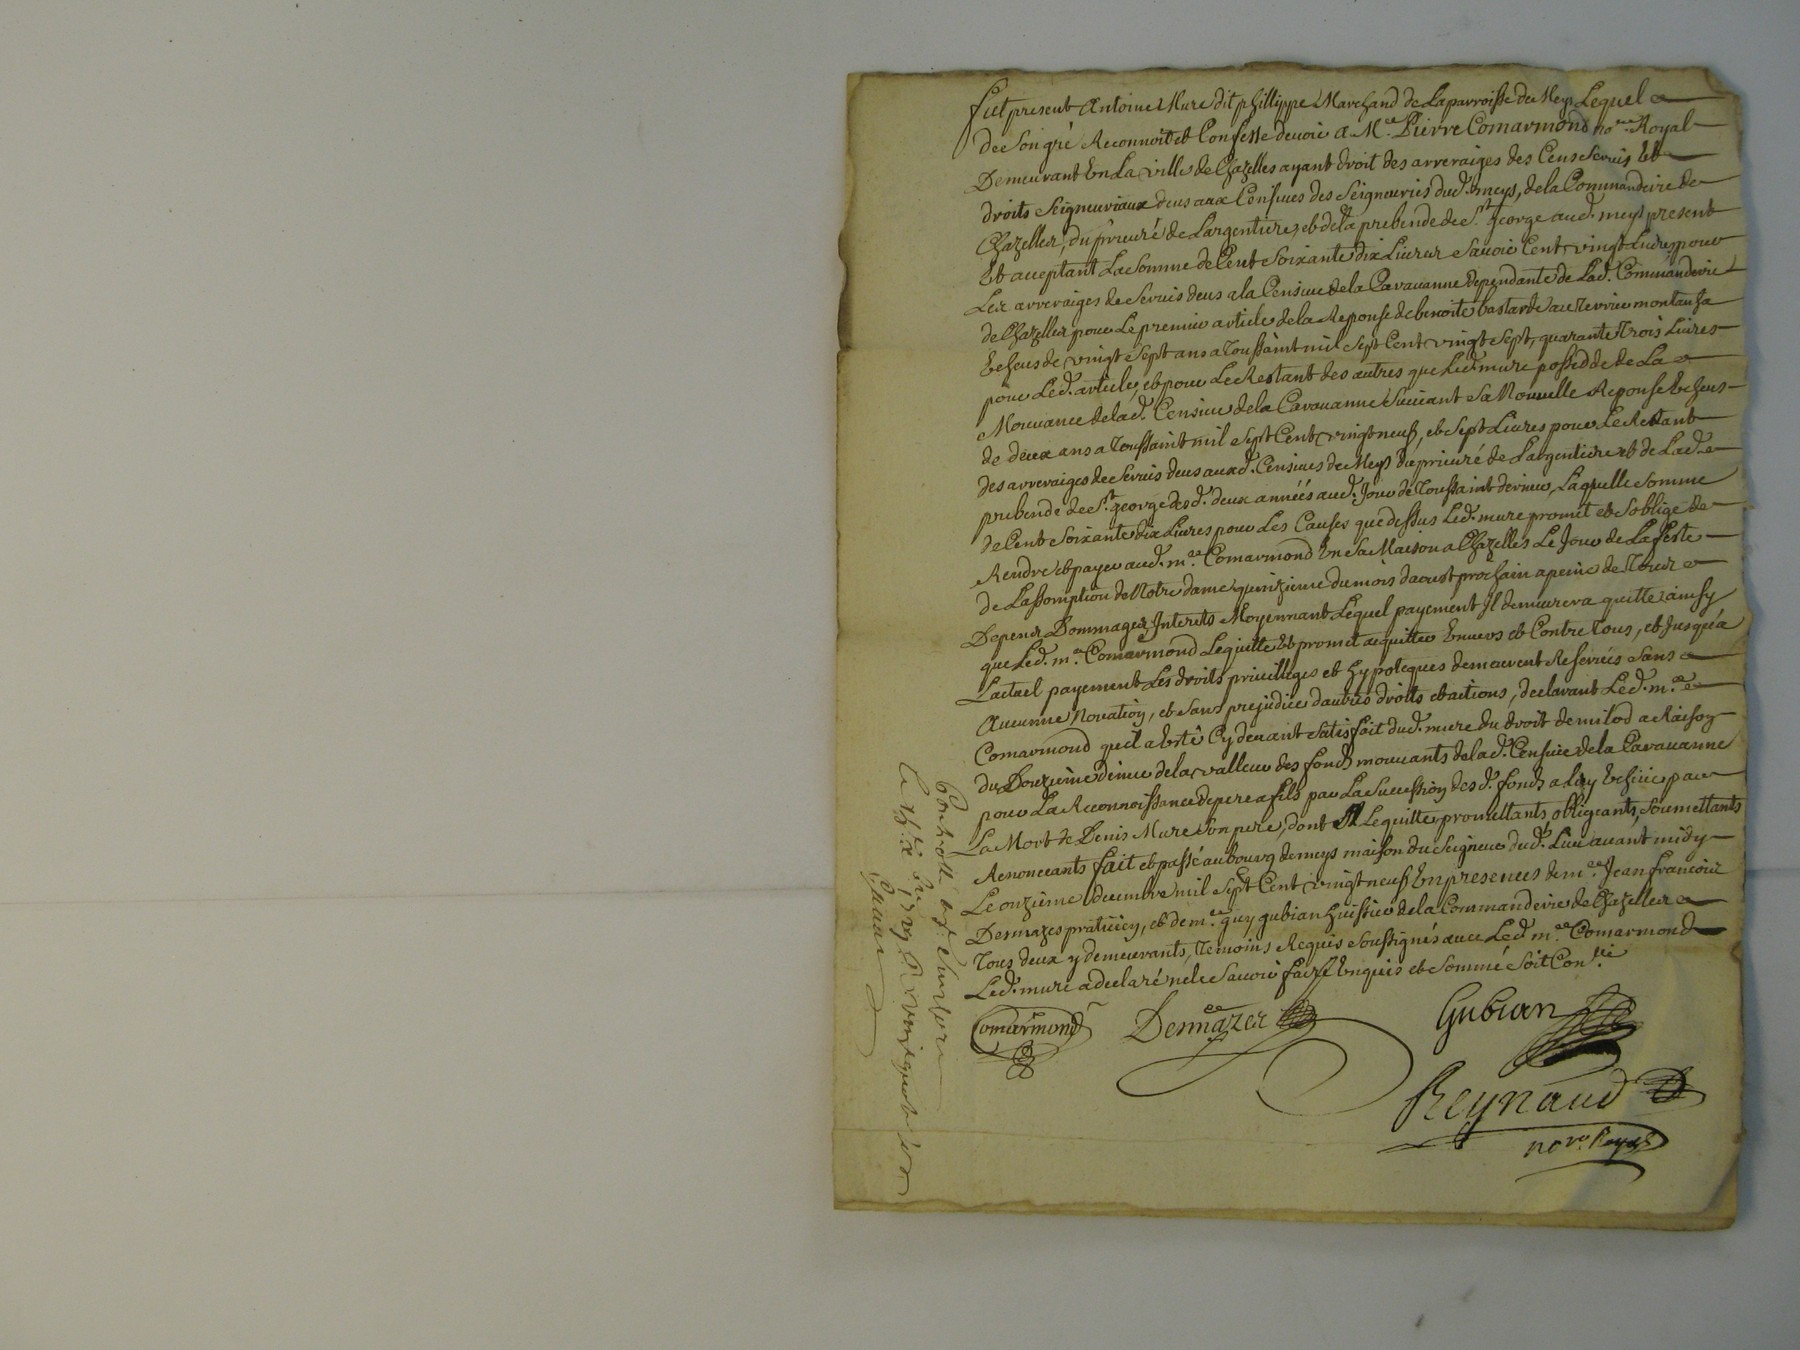 fut present Antoine Mure dit phillippe Marchand de La parroisse de Meys Lequel
de Son gré Reconnoit et Confesse devoir a Me. Pierre Comarmond nore. Royal
Demeurant En La ville de Chazelles ayant droit des arreraiges des Cens Servis et
droits Seigneuriaux deus aux Censives des Seigneuries dud. meys, de la Commanderie de
Chazelles, du prieuré de Largentiere, et de la prebende de St. george aud. meys present
Et acceptant La Somme de Cent Soixante dix Livres Savoir Cent vingt Livres pour
Les arreraiges de Servis deus a la Censive de la Caravanne dependante de Lad. Commanderie
de Chazelles pour Le premier article de la Reponse de benoite bastarde au Terrier montanha
Echeus de vingt Sept ans a Toussaint mil Sept Cent vingt Sept, quarante Trois Livres
pour Led. article, et pour Le Restant des autres que Led. mure possedde de La
Mouvance de lad. Censive de la Caravanne Suivant Sa Nouvelle Reponse Echeus
de deux ans a Toussaint mil Sept Cent vingt neuf, et Sept Livres pour Le Restant
des arreraiges de Servis deus auxd. Censives de Meys du prieuré de Largentiere et de Lad.
prebende de St. george desd. deux années aud. Jour de Toussaint dernier, Laquelle Somme
de Cent Soixante dix Livres pour Les Causes que dessus Led. mure promet et S'oblige de
Rendre et payer aud. me. Comarmond En Sa Maison a Chazelles Le Jour de La feste
de Lassomption de Notre dame quinzieme du mois daoust prochain a peine de Tous
Depens Dommages Interets Moyennant Lequel payement Il demeurera quitte ainsy
que Led. me. Comarmond Le quitte Et promet acquitter Envers et Contre Tous, et Jusqu'a
Lactuel payement Les droits privilleges et hypoteques demeurent Reservés Sans
Aucunne Novation, et Sans prejudice dautres droits et actions, declarant Led. me.
Comarmond qu'il a Esté Cy devant Satisfait dud. mure du droit de milod a Raison
du Douzieme denier de la valleur des fonds mouvants de lad. Censive de la Caravanne
pour La Reconnoissance de pere a fils par La Succession desd. fonds a Luy Echüe par
La Mort de Denis Mure Son pere, dont Il Le quitte, promettants obligeants, Soumettants
Renonceants fait et passé au bourg de meys maison du Seigneur dud. Lieu avant midy
Le onzieme decembre mil Sept Cent vingt neuf En presences de me. Jean francois
Desmazes praticien, et de me. guy gubian huissier de la Commanderie de Chazelles
Tous deux y demeurants, Temoins Requis Soussignés avec Led. me. Comarmond
Led. mure a declaré ne le Savoir faire Enquis et Sommé Soit Conlé
Comarmond Desmazes Gubian
Reynaud
nore. Royal